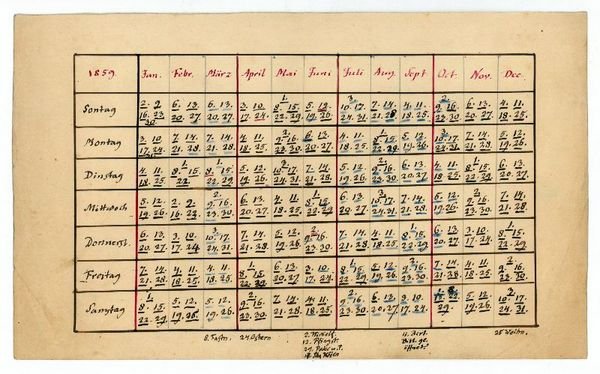 1859 Jan. Febr. März April Mai Juni Juli Aug. Sept Oct. Nov. Dec.
1. 3. 2.
Sontag 2. 9. 6. 13. 6. 13. 3. 10. 8. 15. 5. 12. 10. 17. 7. 14. 4. 11. 9. 16. 6. 13. 4. 11.
16. 23. 20. 27. 20. 27. 17. 24. 22. 29. 19. 26. 24. 31. 21. 28. 18. 25. 23. 30. 20. 27. 18. 25.
30.
2. 1. 3.
Montag 3. 10. 7. 14. 7. 14. 4. 11. 9. 16. 6. 13. 4. 11. 8. 15. 5. 12. 10. 17. 7. 14. 5. 12.
17. 24. 21. 28. 21. 28. 18. 25. 23. 30. 20. 27. 18. 25. 22. 29. 19. 26. 24. 31. 21. 28. 19. 26.
1. 1. 3. 2. 1.
Dinstag 4. 11. 8. 15. 8. 15. 5. 12. 10. 17. 7. 14. 5. 12. 9. 16. 6. 13. 4. 11. 8. 15. 6. 13.
18. 25. 22. 22. 29. 19. 26. 24. 31. 21. 28. 19. 26. 23. 30. 20. 27. 18. 25. 22. 29. 20. 27.
2. 1. 3. 2.
Mittwoch 5. 12. 2. 9. 9. 16. 6. 13. 4. 11. 8. 15. 6. 13. 10. 17. 7. 14. 5. 12. 9. 16. 7. 14.
19. 26. 16. 23. 23. 30. 20. 27. 18. 25. 22. 29. 20. 27. 24. 31. 21. 28. 19. 26. 23. 30. 21. 28.
3. 2. 1. 1.
Donnerst. 6. 13. 3. 10. 10. 17. 7. 14. 5. 12. 9. 16. 7. 14. 4. 11. 8. 15. 6. 13. 3. 10. 8. 15.
20. 27. 17. 24. 24. 31. 21. 28. 19. 26. 23. 30. 21. 28. 18. 25. 22. 29. 20. 27. 17. 24. 22. 29.
1. 1. 2. 2.
Freitag 7. 14. 4. 11. 4. 11. 8. 15. 6. 13. 3. 10. 8. 15. 5. 12. 9. 16. 7. 14. 4. 11. 9. 16.
21. 28. 18. 25. 18. 25. 22. 29. 20. 27. 17. 24. 22. 29. 19. 26. 23. 30. 21. 28. 18. 25. 23. 30.
1. 2. 2. 3.
Samstag 8. 15. 5. 12. 5. 12. 9. 16. 7. 14. 4. 11. 9. 16. 6. 13. 3. 10. 5. 12. 10. 17.
22. 29. 19. 26. 19. 26. 23. 30. 21. 28. 18. 25. 23. 30. 20. 27. 17. 24. 19. 26. 24. 31.
8. Fastn. 24 Ostern 12. Pfingst. 25 Weihn.